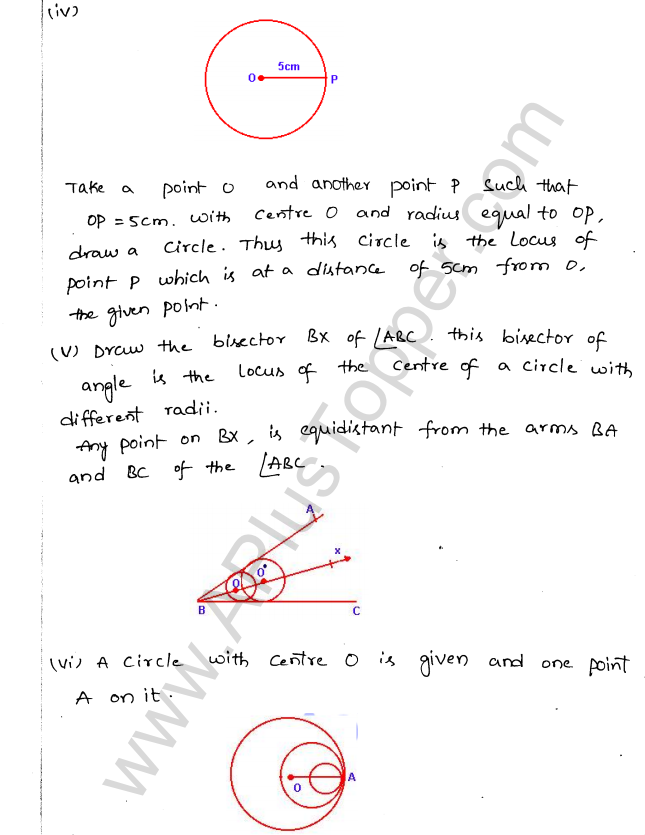 (iv)
5cm
O P
Take a point O and another point P such that
OP = 5cm. with centre O and radius equal to OP,
draw a circle. Thus this circle is the Locus of
point P which is at a distance of 5cm from O,
the given point.
(V) Draw the bisector BX of ∠ABC. this bisector of
angle is the locus of the centre of a circle with
different radii.
Any point on BX, is equidistant from the arms BA
and BC of the ∠ABC.
A
x
O O'
B C
(Vi) A circle with centre O is given and one point
A on it.
O A
www.APlusTopper.com